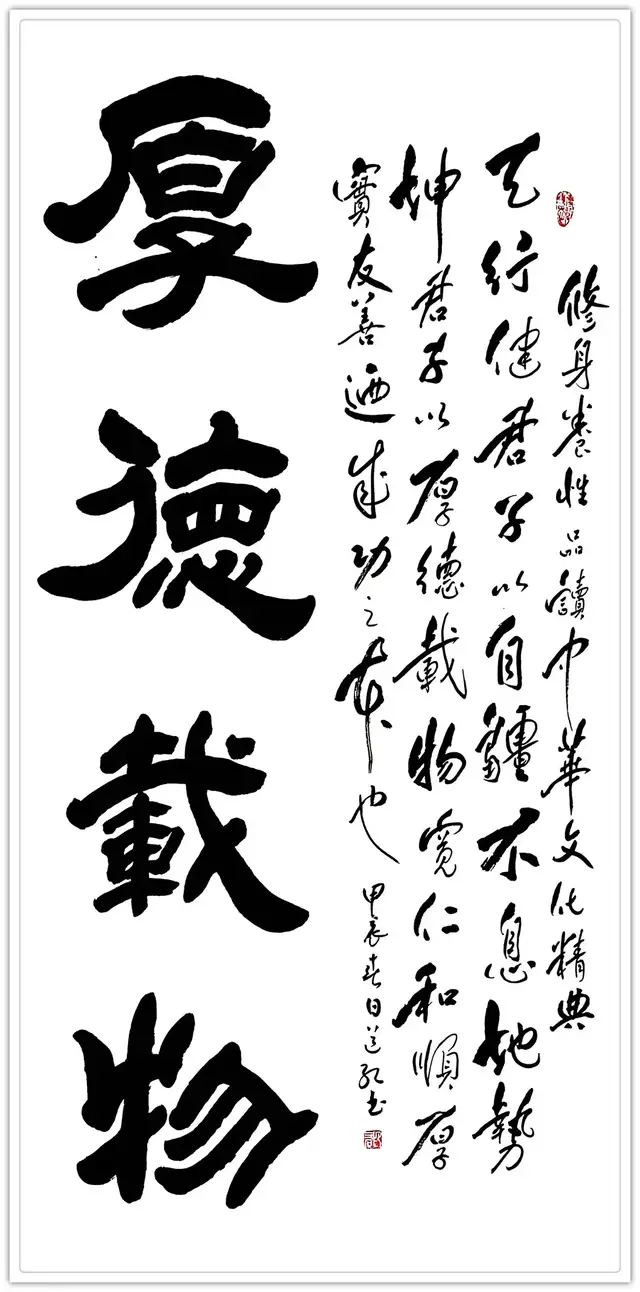 修身養性品讀中華文化精典
天行健君子以自疆不息地勢
坤君子以厚德載物寬仁和順厚
實友善迺成功之本也
甲辰春日书
厚德載物